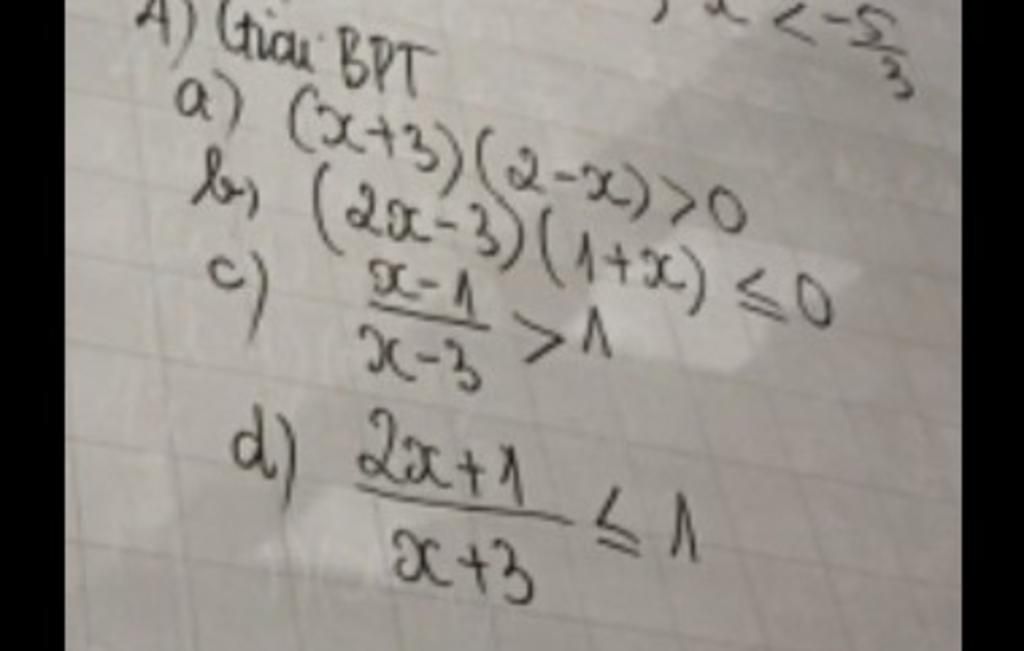 , x < -5/3
4) Giải BPT
a) (x+3)(2-x)>0
b, (2x-3)(1+x) ≤0
c) x-1/x-3 > 1
d) 2x+1/x+3 ≤ 1